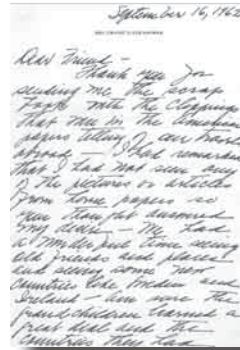 September 16, 1962
MRS. DWIGHT D. EISENHOWER
Dear Friend –
Thank you for
sending me the scrap
book with the clippings
that ran in the American
papers telling of our travels
abroad – I had remarked
that I had not seen any
of the pictures or articles
from home papers so
you thought answered
my desire – We had
a wonderful time seeing
old friends and places
and seeing some new
countries like Sweden and
Ireland – am sure the
grandchildren learned a
great deal and the
countries they had